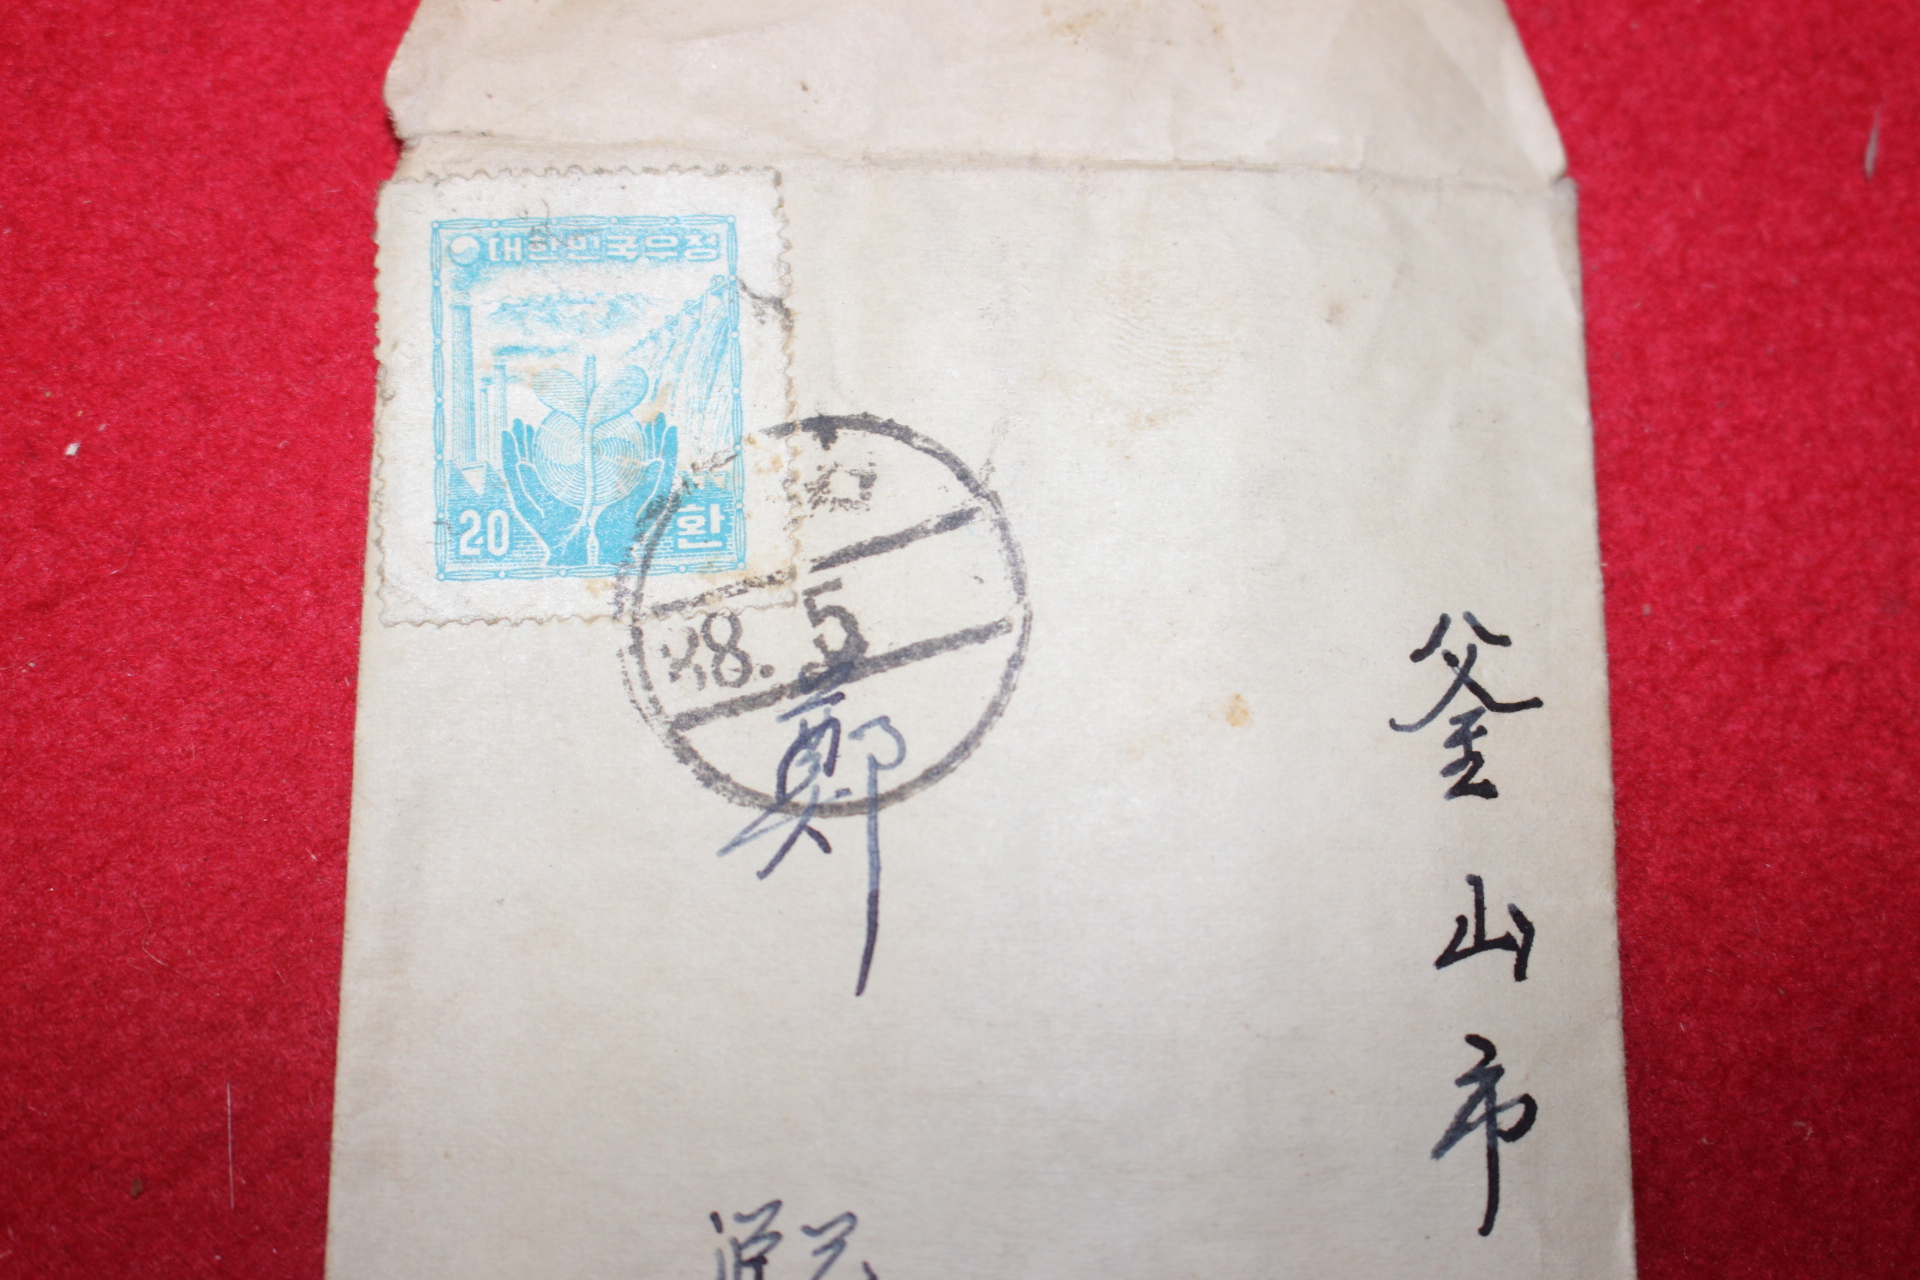 대한민국우정
20 환
88. 5
釜山市
鄭